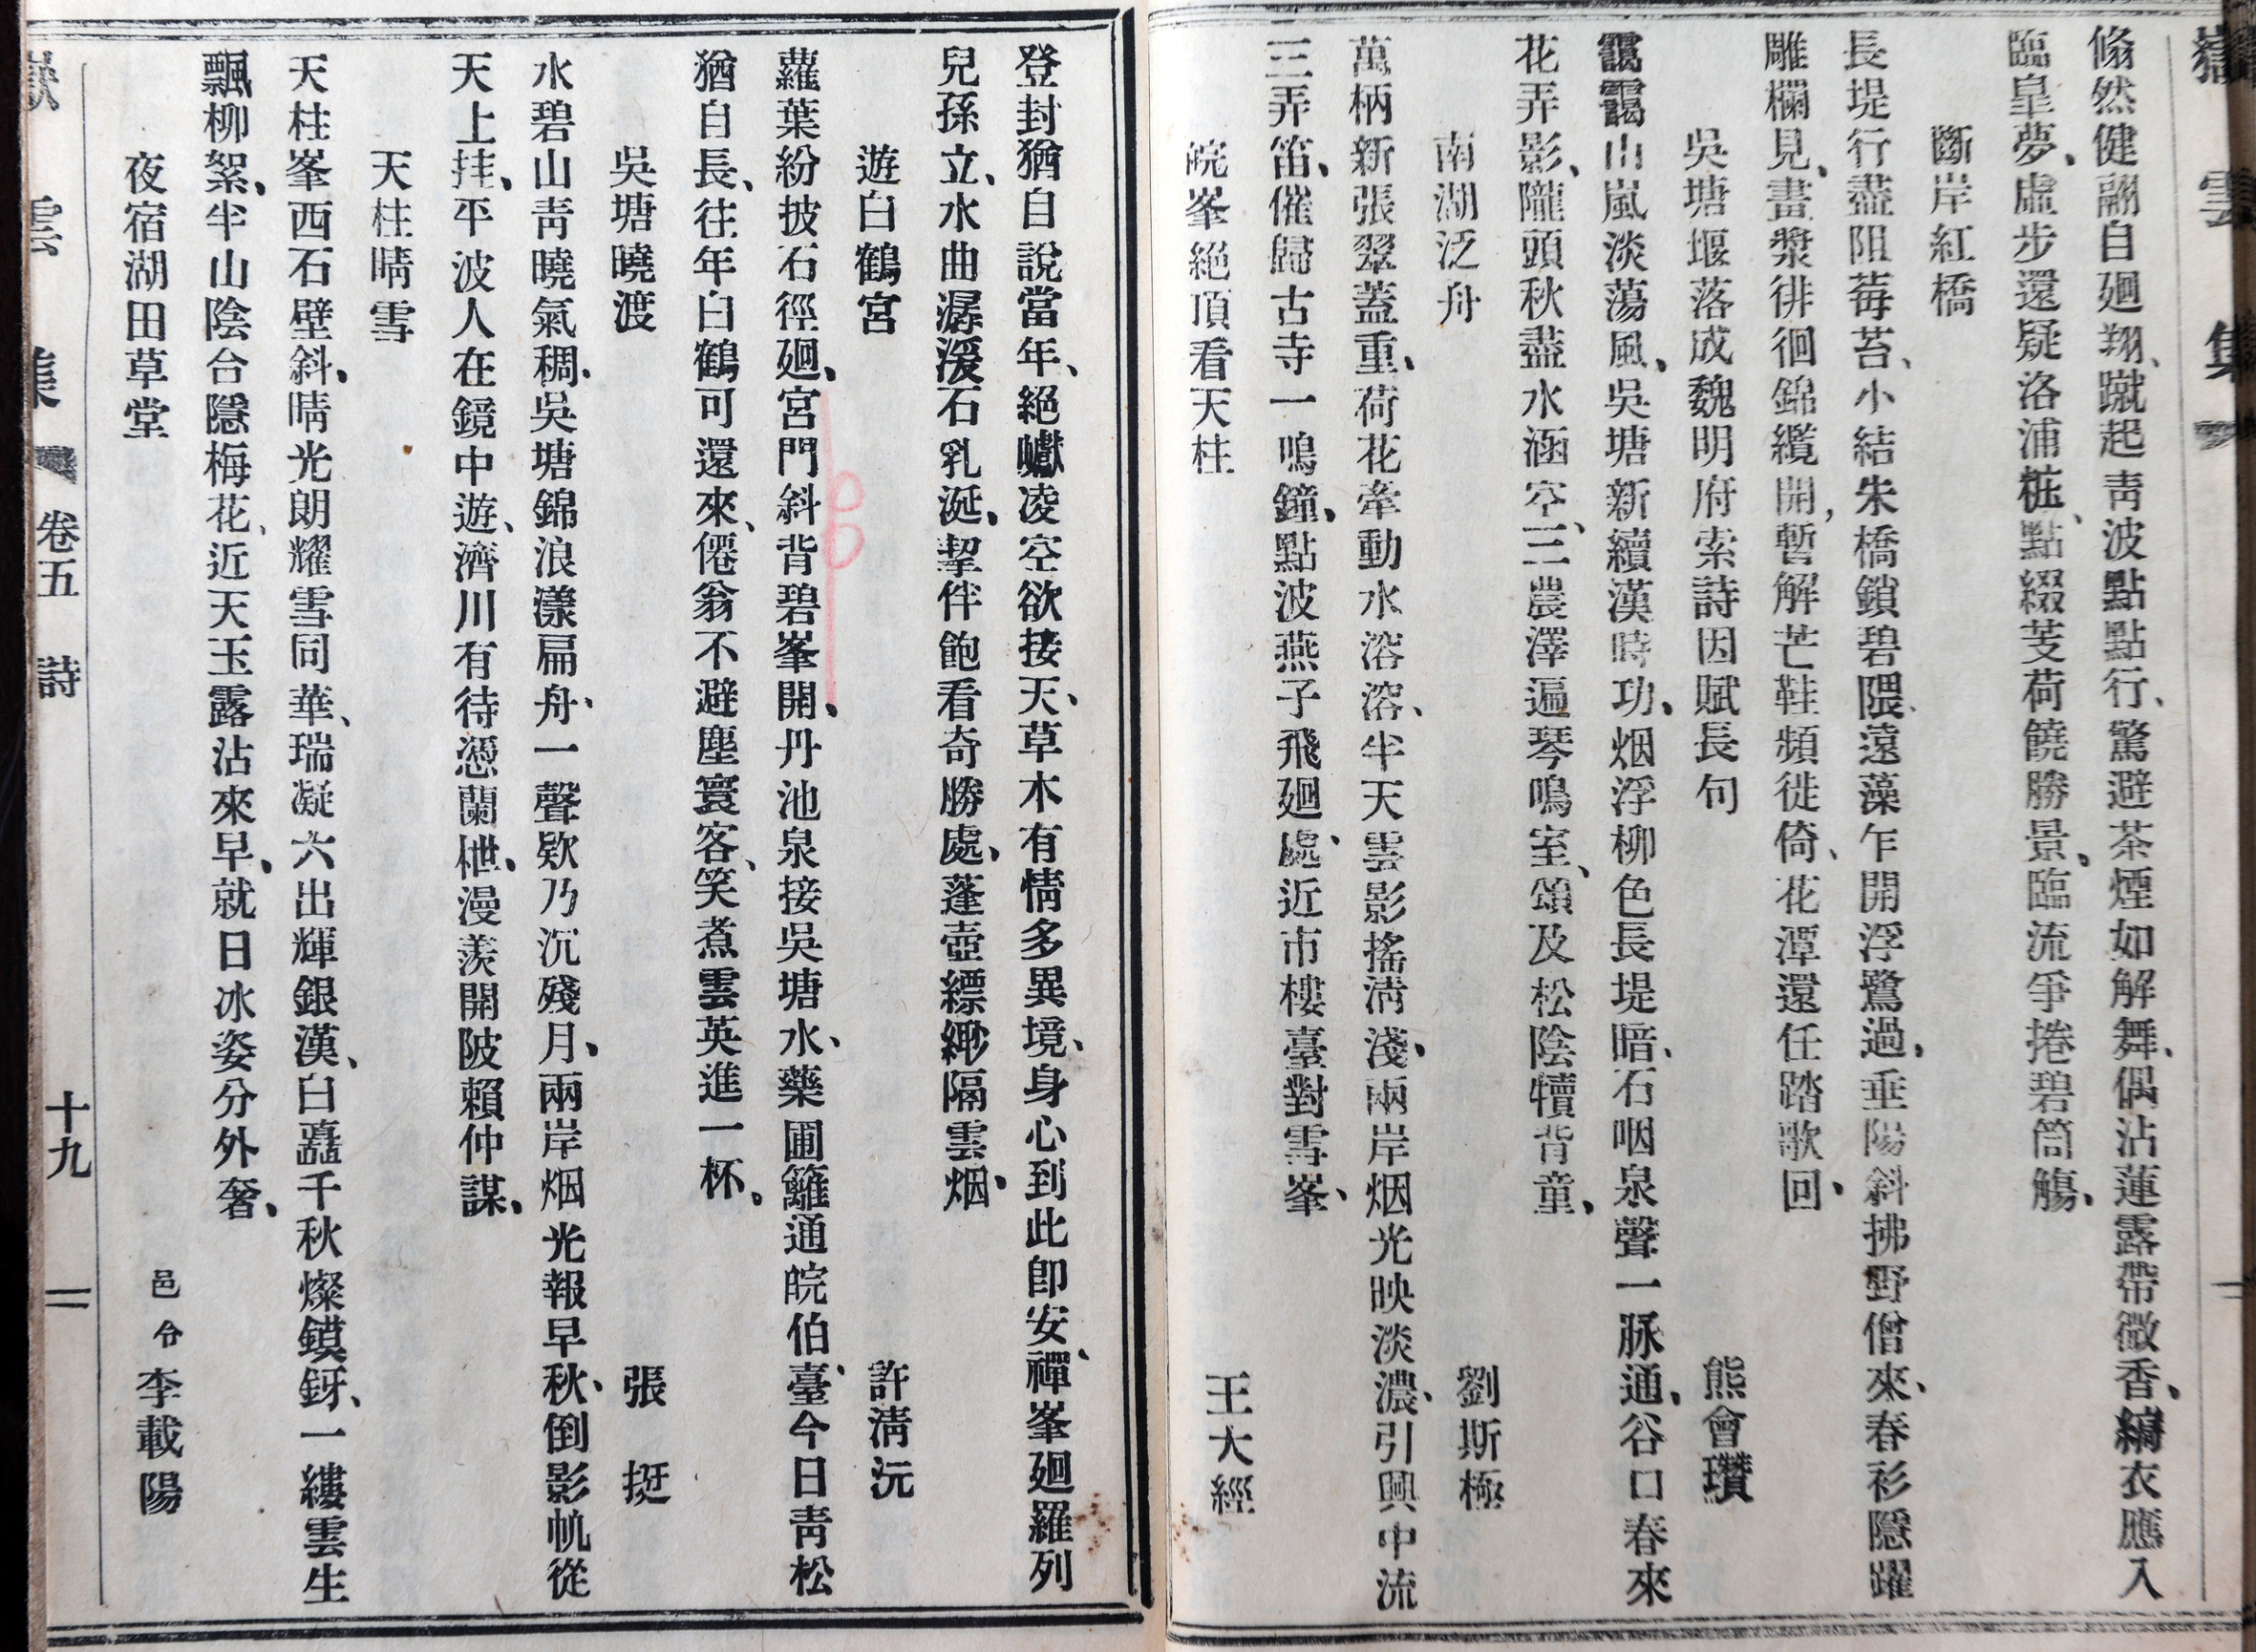 嶽雲集
翛然健翮自廻翔、蹴起靑波點點行、驚避茶煙如解舞、偶沾蓮露帶微香、縞衣應入
臨皐夢、虛步還疑洛浦粧、點綴芰荷饒勝景、臨流爭捲碧筒觴、
斷岸紅橋
長堤行盡阻莓苔、小結朱橋鎖碧隈、遠藻乍開浮鷺過、垂陽斜拂野僧來、春衫隱躍
雕欄見、畫槳徘徊錦纜開、暫解芒鞋頻徙倚、花潭還任踏歌回、
吳塘堰落成魏明府索詩因賦長句
熊會瓚
靄靄山嵐淡蕩風、吳塘新續漢時功、烟浮柳色長堤暗、石咽泉聲一脉通、谷口春來
花弄影、隴頭秋盡水涵空、三農澤遍琴鳴室、頌及松陰犢背童、
南湖泛舟
劉斯極
萬柄新張翠蓋重、荷花牽動水溶溶、半天雲影搖淸淺、兩岸烟光映淡濃、引興中流
三弄笛、催歸古寺一鳴鐘、點波燕子飛廻處、近市樓臺對雪峯、
皖峯絕頂看天柱
王大經
登封猶自說當年、絕巘凌空欲接天、草木有情多異境、身心到此卽安禪、峯廻羅列
兒孫立、水曲潺湲石乳涎、挈伴飽看奇勝處、蓬壺縹緲隔雲烟、
遊白鶴宮
許淸沅
蘿葉紛披石徑廻、宮門斜背碧峯開、丹池泉接吳塘水、藥圃籬通皖伯臺、今日靑松
猶自長、往年白鶴可還來、僊翁不避塵寰客、笑煮雲英進一杯、
吳塘曉渡
張挺
水碧山靑曉氣稠、吳塘錦浪漾扁舟、一聲欵乃沉殘月、兩岸烟光報早秋、倒影帆從
天上挂、平波人在鏡中遊、濟川有待憑蘭枻、漫羨開陂賴仲謀、
天柱晴雪
天柱峯西石壁斜、晴光朗耀雪同華、瑞凝六出輝銀漢、白矗千秋燦鏌釾、一縷雲生
飄柳絮、半山陰合隱梅花、近天玉露沾來早、就日冰姿分外奢、
夜宿湖田草堂
邑令李載陽
嶽雲集
卷五 詩
十九